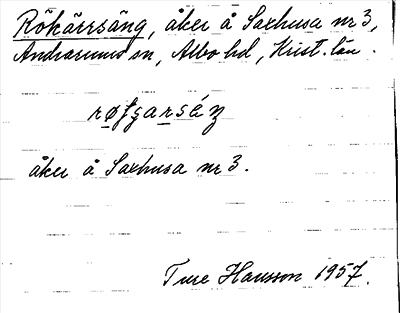 Rökärrsäng, åker å Saxhusa nr 3,
Andrarums sn, Albo hd, Krist. län.
røʃʒarséŋ
åker å Saxhusa nr 3.
Ture Hansson 1957.